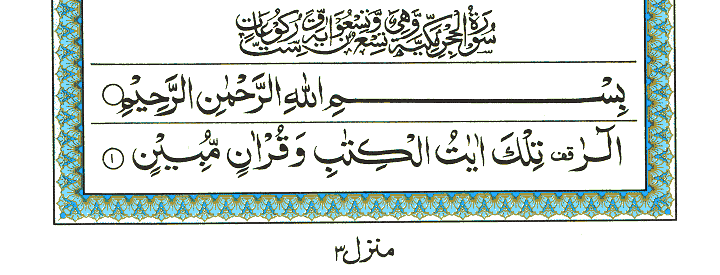 سُوْرَةُ الْحِجْرِ مَكِّيَّةٌ وَّهِيَ تِسْعٌ وَّتِسْعُوْنَ اٰيَةً وَّسِتُّ رُكُوْعَاتٍ
بِسْمِ اللّٰهِ الرَّحْمٰنِ الرَّحِيْمِ
الٓرٰ قف تِلْكَ اٰيٰتُ الْكِتٰبِ وَقُرْاٰنٍ مُّبِيْنٍ ۝١
منزل ٣